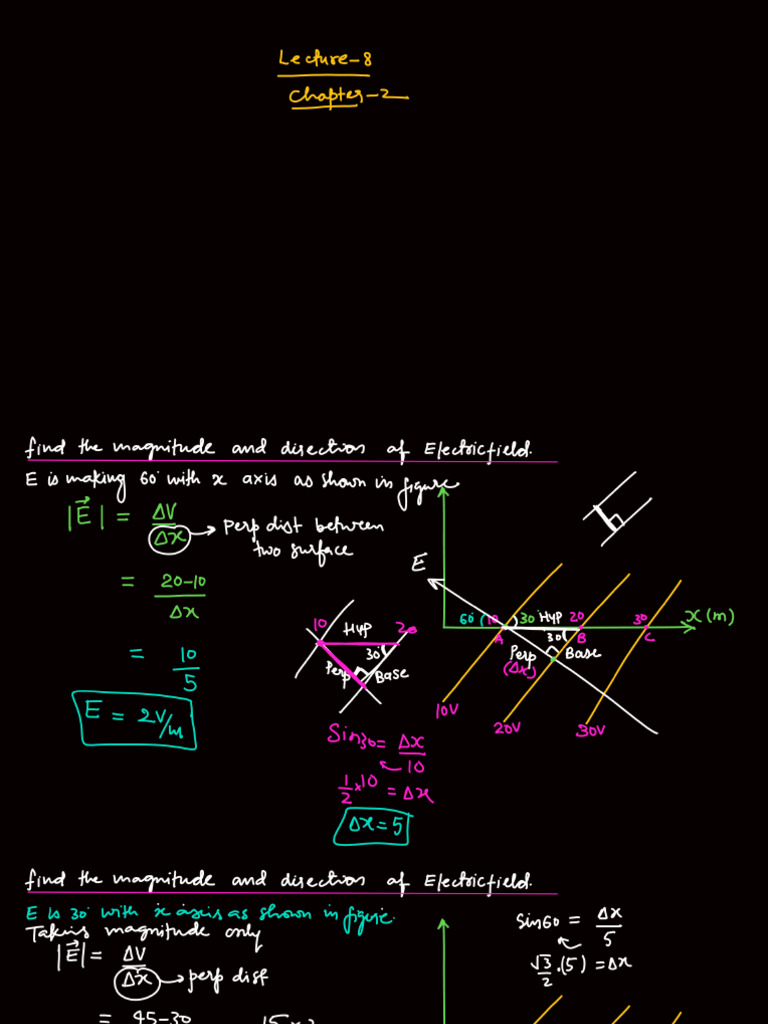 Lecture-8
Chapter-2
find the magnitude and direction of Electric field.
E is making 60° with x axis as shown in figure
|E⃗| = ΔV/Δx → perp dist between two surface
= 20-10/Δx
= 10/5
E = 2V/m
10 Hyp 20
30°
Perp Base
Sin30 = Δx/10
1/2 × 10 = Δx
Δx = 5
E
60° 10 30° Hyp 20 30 x(m)
A 30 B C
Perp (Δx) Base
10V 20V 30V
find the magnitude and direction of Electric field.
E is 30° with x axis as shown in figure.
Taking magnitude only
|E⃗| = ΔV/Δx → perp dist
= 45-30
15×2
Sin60 = Δx/5
√3/2 .(5) = Δx